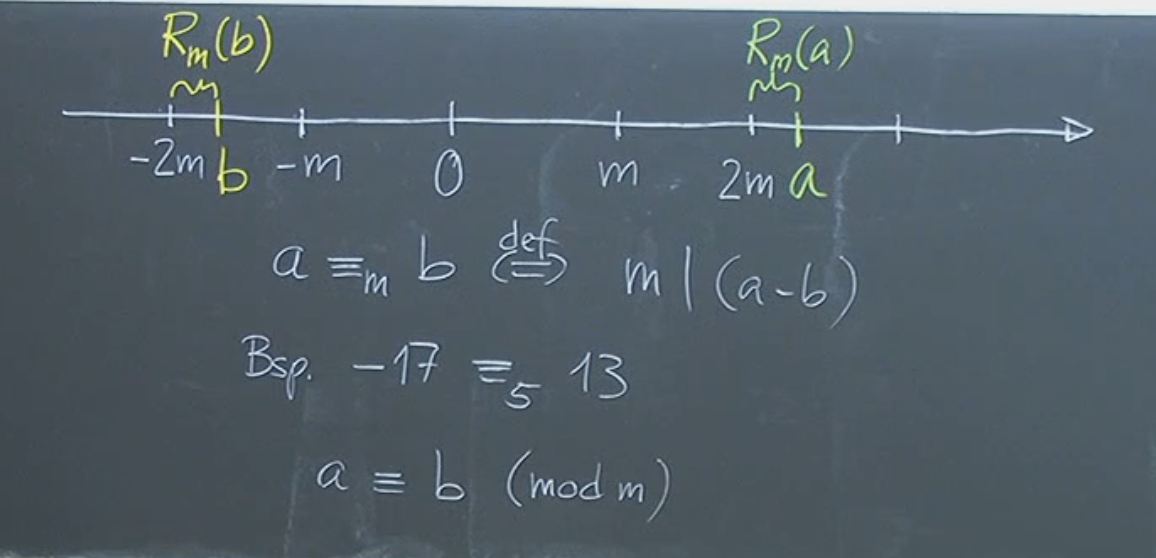 Rm(b) Rm(a)
-2m b -m 0 m 2m a
a ≡m b ⇔def m | (a-b)
Bsp. -17 ≡5 13
a ≡ b (mod m)